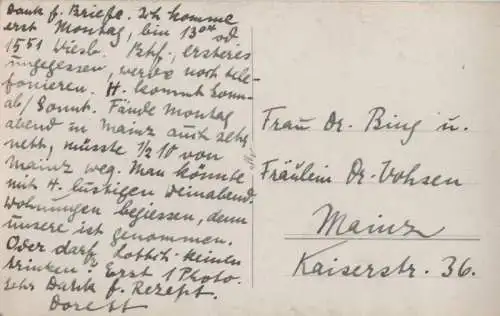 Dank f. Briefe. Ich komme
erst Montag, bin 13 od
1551 Wiesb. Bhf., ersteres
ungegessen, werde noch tele-
fonieren. H. kommt Sonn-
ab/Sonnt. Fände Montag
abend in Mainz auch sehr
nett, müsste 1/2 10 von
Mainz weg. Man könnte
mit H. lustigen Weinabend.
Wohnungen begiessen, denn
unsere ist genommen.
Oder darf keinen
trinken? Erst 1 Photo.
Sehr Dank f. Rezept.
Dorett
Frau Dr. Bing u.
Fräulein Dr. Vohsen
Mainz
Kaiserstr. 36.